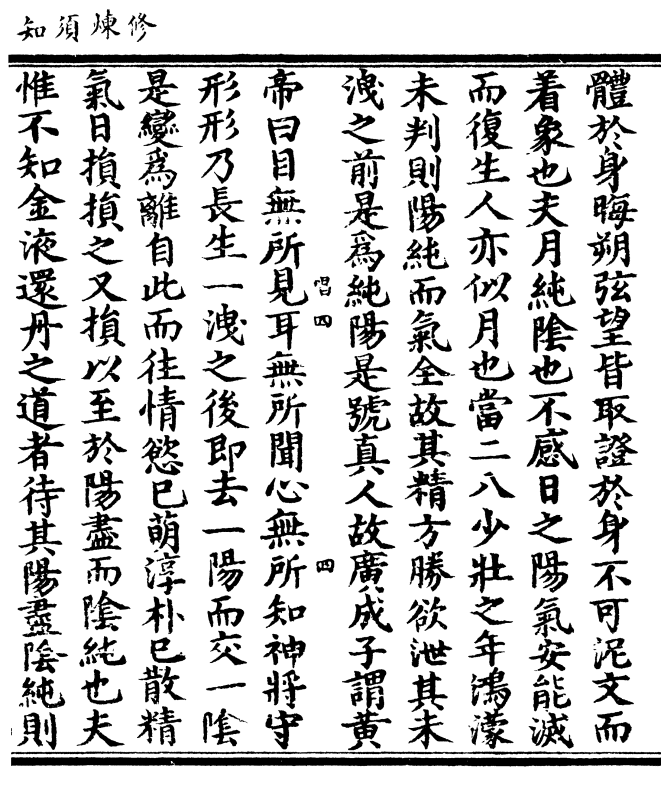 修煉須知
體於身晦朔弦望皆取證於身不可泥文而
着象也夫月純陰也不感日之陽氣安能滅
而復生人亦似月也當二八少壯之年鴻濛
未判則陽純而氣全故其精方勝欲泄其未
洩之前是爲純陽是號真人故廣成子謂黃
唱四
四
帝曰目無所見耳無所聞心無所知神將守
形形乃長生一洩之後即去一陽而交一陰
是變爲離自此而往情慾已萌淳朴已散精
氣日損損之又損以至於陽盡而陰純也夫
惟不知金液還丹之道者待其陽盡陰純則